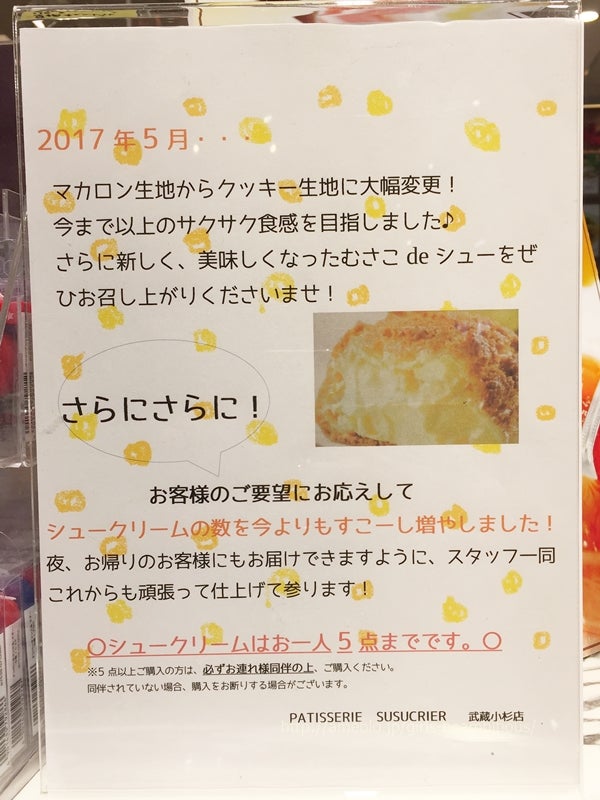 2017 年 5 月・・・
マカロン生地からクッキー生地に大幅変更！
今まで以上のサクサク食感を目指しました♪
さらに新しく、美味しくなったむさこ de シューをぜ
ひお召し上がりくださいませ！
さらにさらに！
お客様のご要望にお応えして
シュークリームの数を今よりもすこーし増やしました！
夜、お帰りのお客様にもお届けできますように、スタッフ一同
これからも頑張って仕上げて参ります！
〇シュークリームはお一人 5 点までです。〇
※5 点以上ご購入の方は、必ずお連れ様同伴の上、ご購入ください。
同伴されていない場合、購入をお断りする場合がございます。
PATISSERIE SUSUCRIER 武蔵小杉店